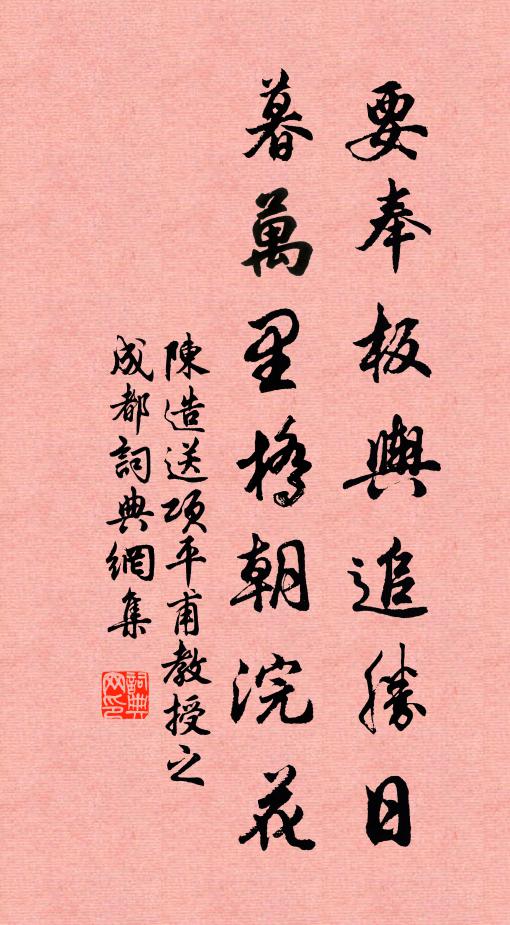 要奉板輿追勝日
暮萬里橋朝浣花
陳造送項平甫教授之
成都詞典網集
詞典網印